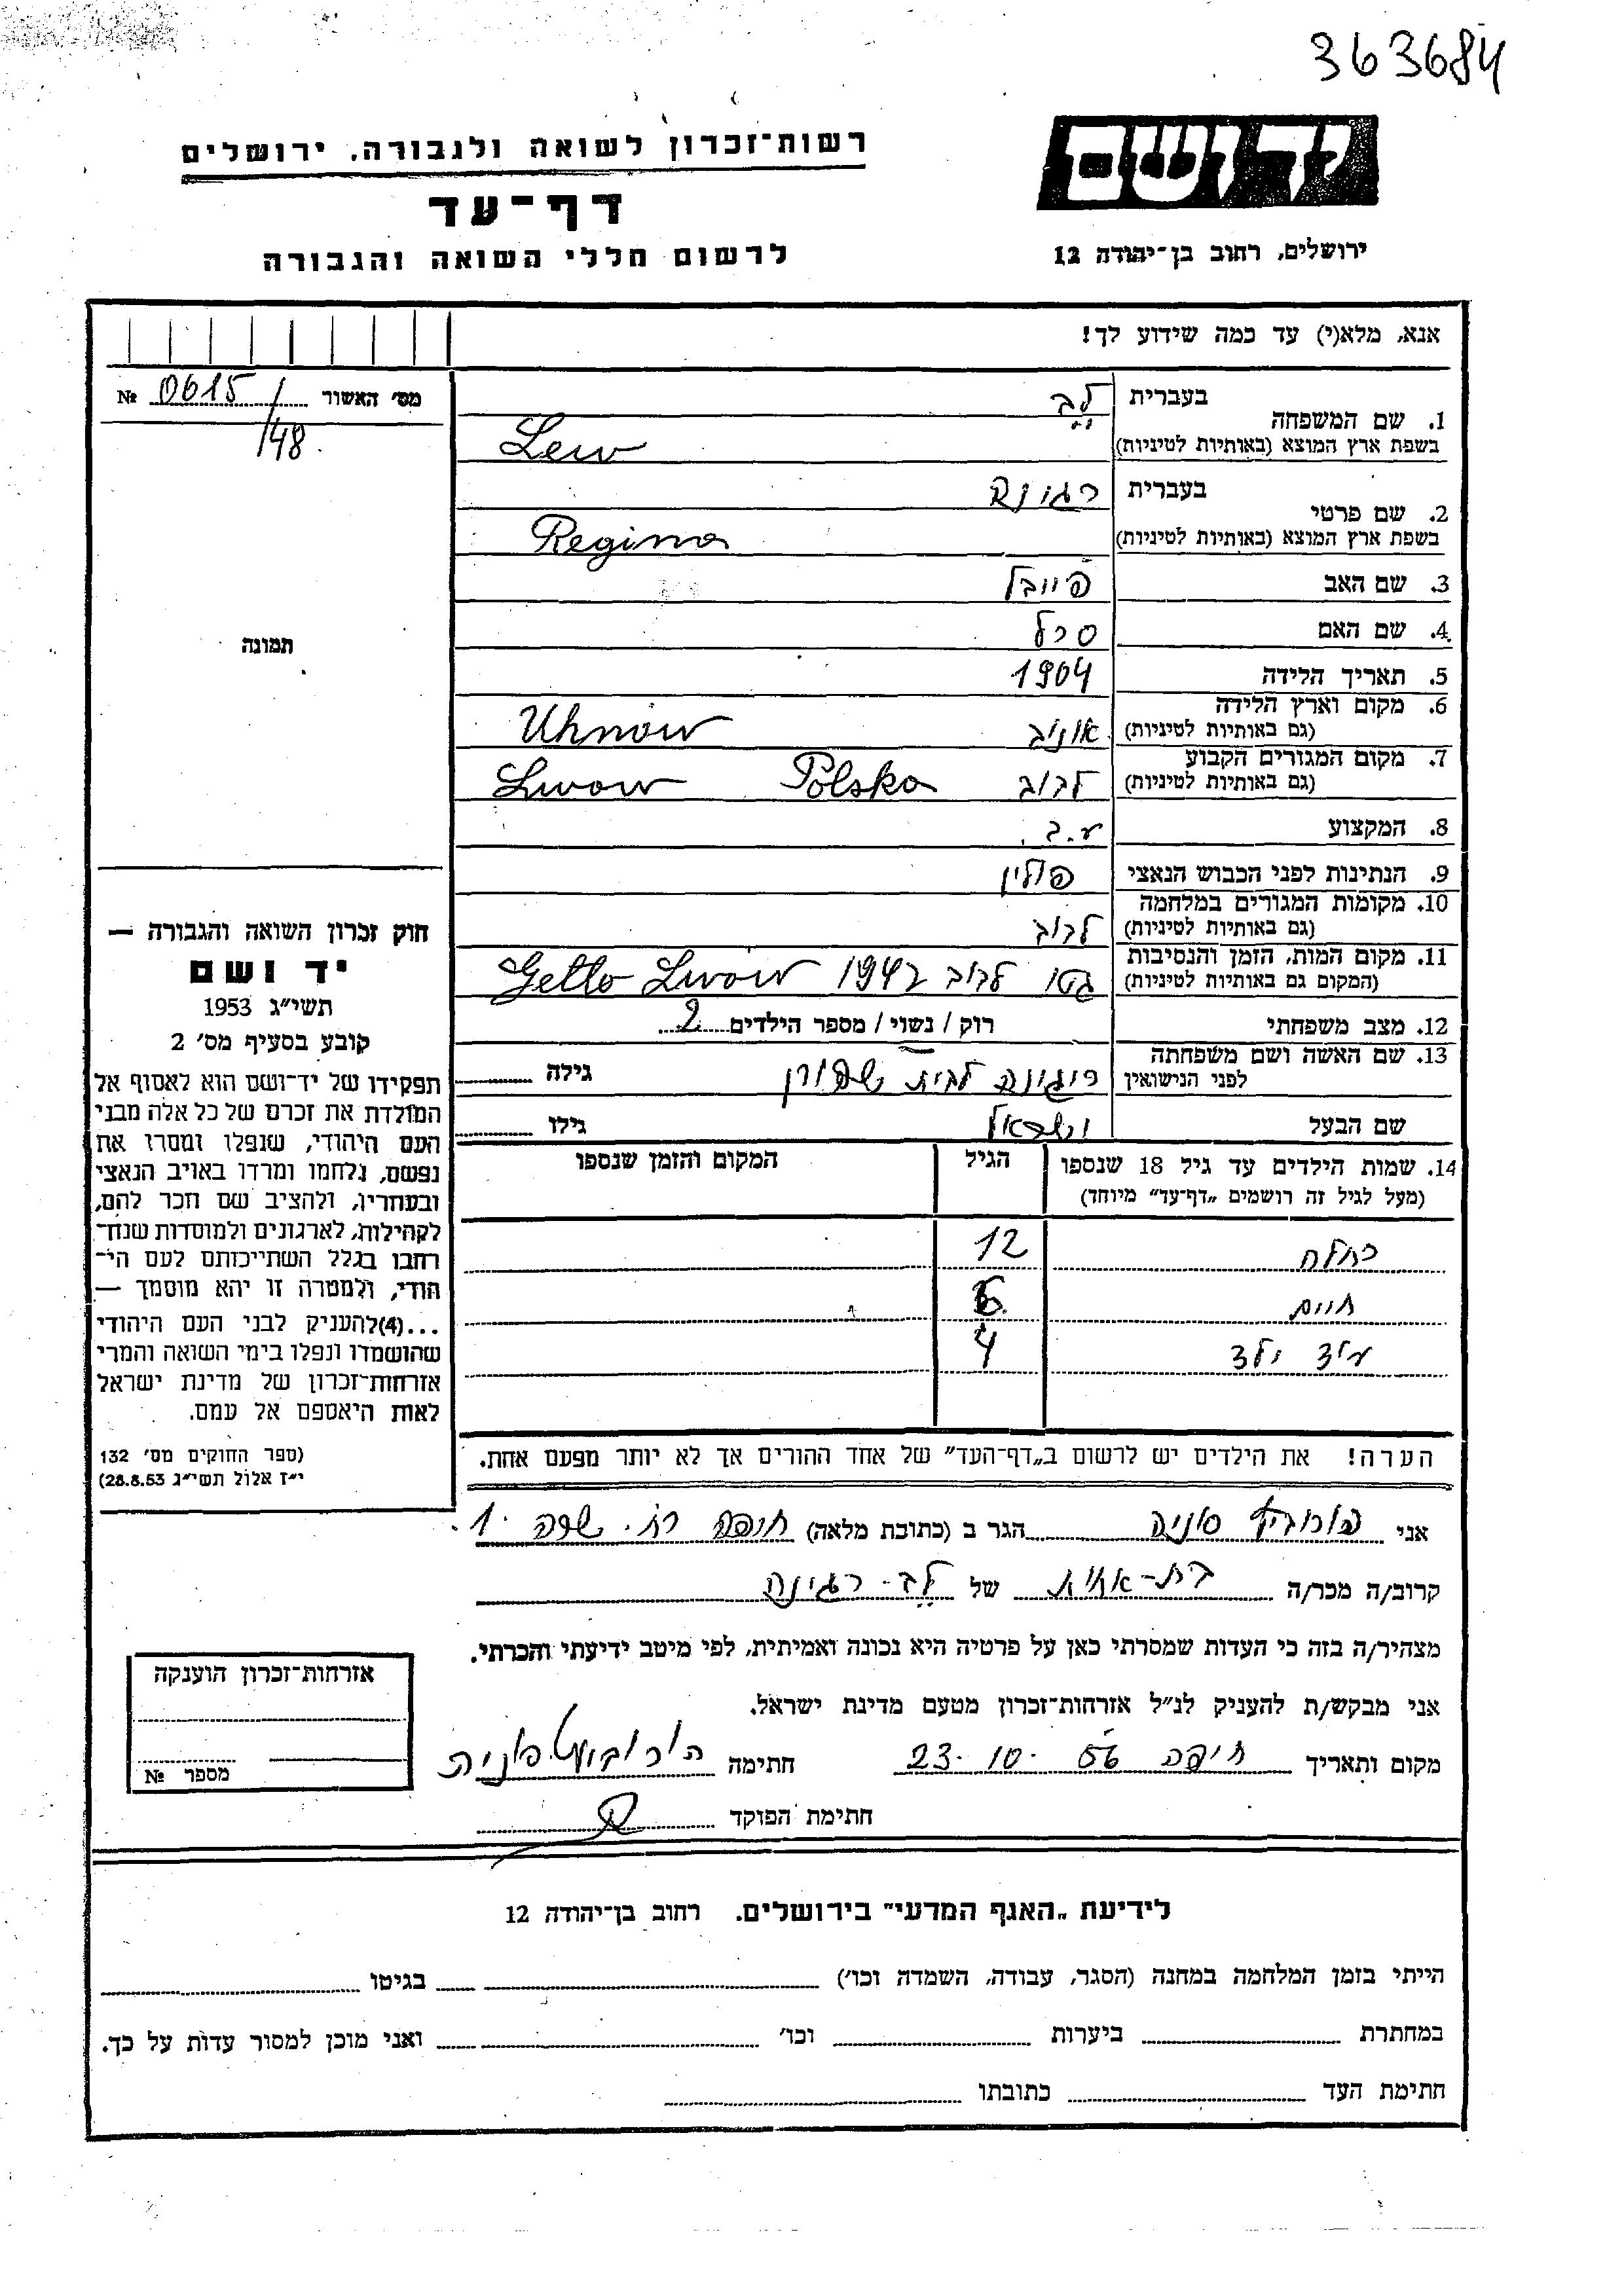 363684
יד ושם
רשות־זכרון לשואה ולגבורה, ירושלים
דף־עד
לרשום חללי השואה והגבורה
ירושלים, רחוב בן־יהודה 12
אנא, מלא(י) עד כמה שידוע לך!
מס׳ האשור 0615/148 №
1. שם המשפחה בעברית לב
בשפת ארץ המוצא (באותיות לטיניות) Lew
2. שם פרטי בעברית רגינה
בשפת ארץ המוצא (באותיות לטיניות) Regina
3. שם האב פייבל
4. שם האם
5. תאריך הלידה 1904
6. מקום וארץ הלידה
(גם באותיות לטיניות) Uhnow
7. מקום המגורים הקבוע
(גם באותיות לטיניות) לבוב Polska Lwow
8. המקצוע ע.ב.
9. הנתינות לפני הכבוש הנאצי פולין
10. מקומות המגורים במלחמה
(גם באותיות לטיניות) לבוב
11. מקום המות, הזמן והנסיבות
(המקום גם באותיות לטיניות) גטו לבוב 1942 Getto Lwow
12. מצב משפחתי רוק / נשוי / מספר הילדים 2
13. שם האשה ושם משפחתה
לפני הנישואין רגינה לבית גילה
שם הבעל ישראל גילו
14. שמות הילדים עד גיל 18 שנספו הגיל המקום והזמן שנספו
(מעל לגיל זה רושמים „דף־עד״ מיוחד)
רחל 12
חיים 6
עוד ילד 4
הערה! את הילדים יש לרשום ב„דף־העד״ של אחד ההורים אך לא יותר מפעם אחת.
תמונה
חוק זכרון השואה והגבורה —
יד ושם
תשי״ג 1953
קובע בסעיף מס׳ 2
תפקידו של יד־ושם הוא לאסוף אל
המולדת את זכרם של כל אלה מבני
העם היהודי, שנפלו ומסרו את
נפשם, נלחמו ומרדו באויב הנאצי
ובעוזריו, ולהציב שם וזכר להם,
לקהילות, לארגונים ולמוסדות שנח־
רחבו בגלל השתייכותם לעם הי־
הודי, ולמטרה זו יהא מוסמך —
...(4) להעניק לבני העם היהודי
שהושמדו ונפלו בימי השואה והמרי
אזרחות־זכרון של מדינת ישראל
לאות היאספם אל עמם.
(ספר החוקים מס׳ 132
י״ז אלול תשי״ג 28.8.53)
אני סוניה הגר ב (כתובת מלאה) חיפה רח. 1.
קרוב/ה מכר/ה בת-אחות של לב - רגינה
מצהיר/ה בזה כי העדות שמסרתי כאן על פרטיה היא נכונה ואמיתית, לפי מיטב ידיעתי והכרתי.
אני מבקש/ת להעניק לנ״ל אזרחות־זכרון מטעם מדינת ישראל.
מקום ותאריך חיפה 23.10.56 חתימה
חתימת הפוקד
אזרחות־זכרון הוענקה
מספר №
לידיעת „האגף המדעי״ בירושלים. רחוב בן־יהודה 12
הייתי בזמן המלחמה במחנה (הסגר, עבודה, השמדה וכו׳) בגיטו
במחתרת ביערות וכו׳ ואני מוכן למסור עדות על כך.
חתימת העד כתובתו